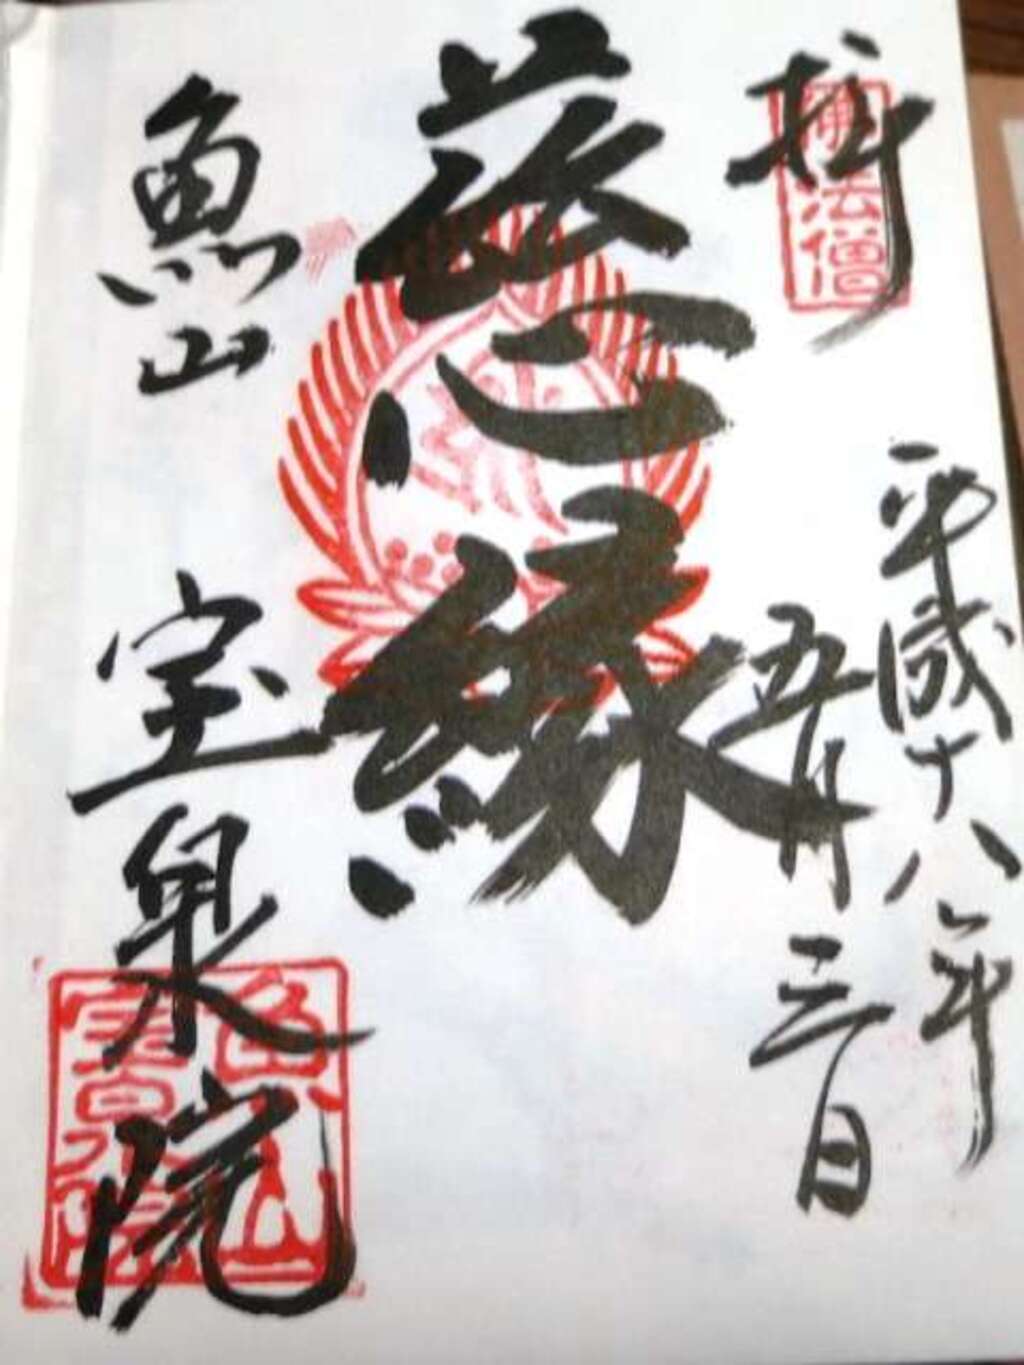 拝
佛法僧
平成十八年
五月三日
慈縁
魚山 宝泉院
魚山
寶泉院